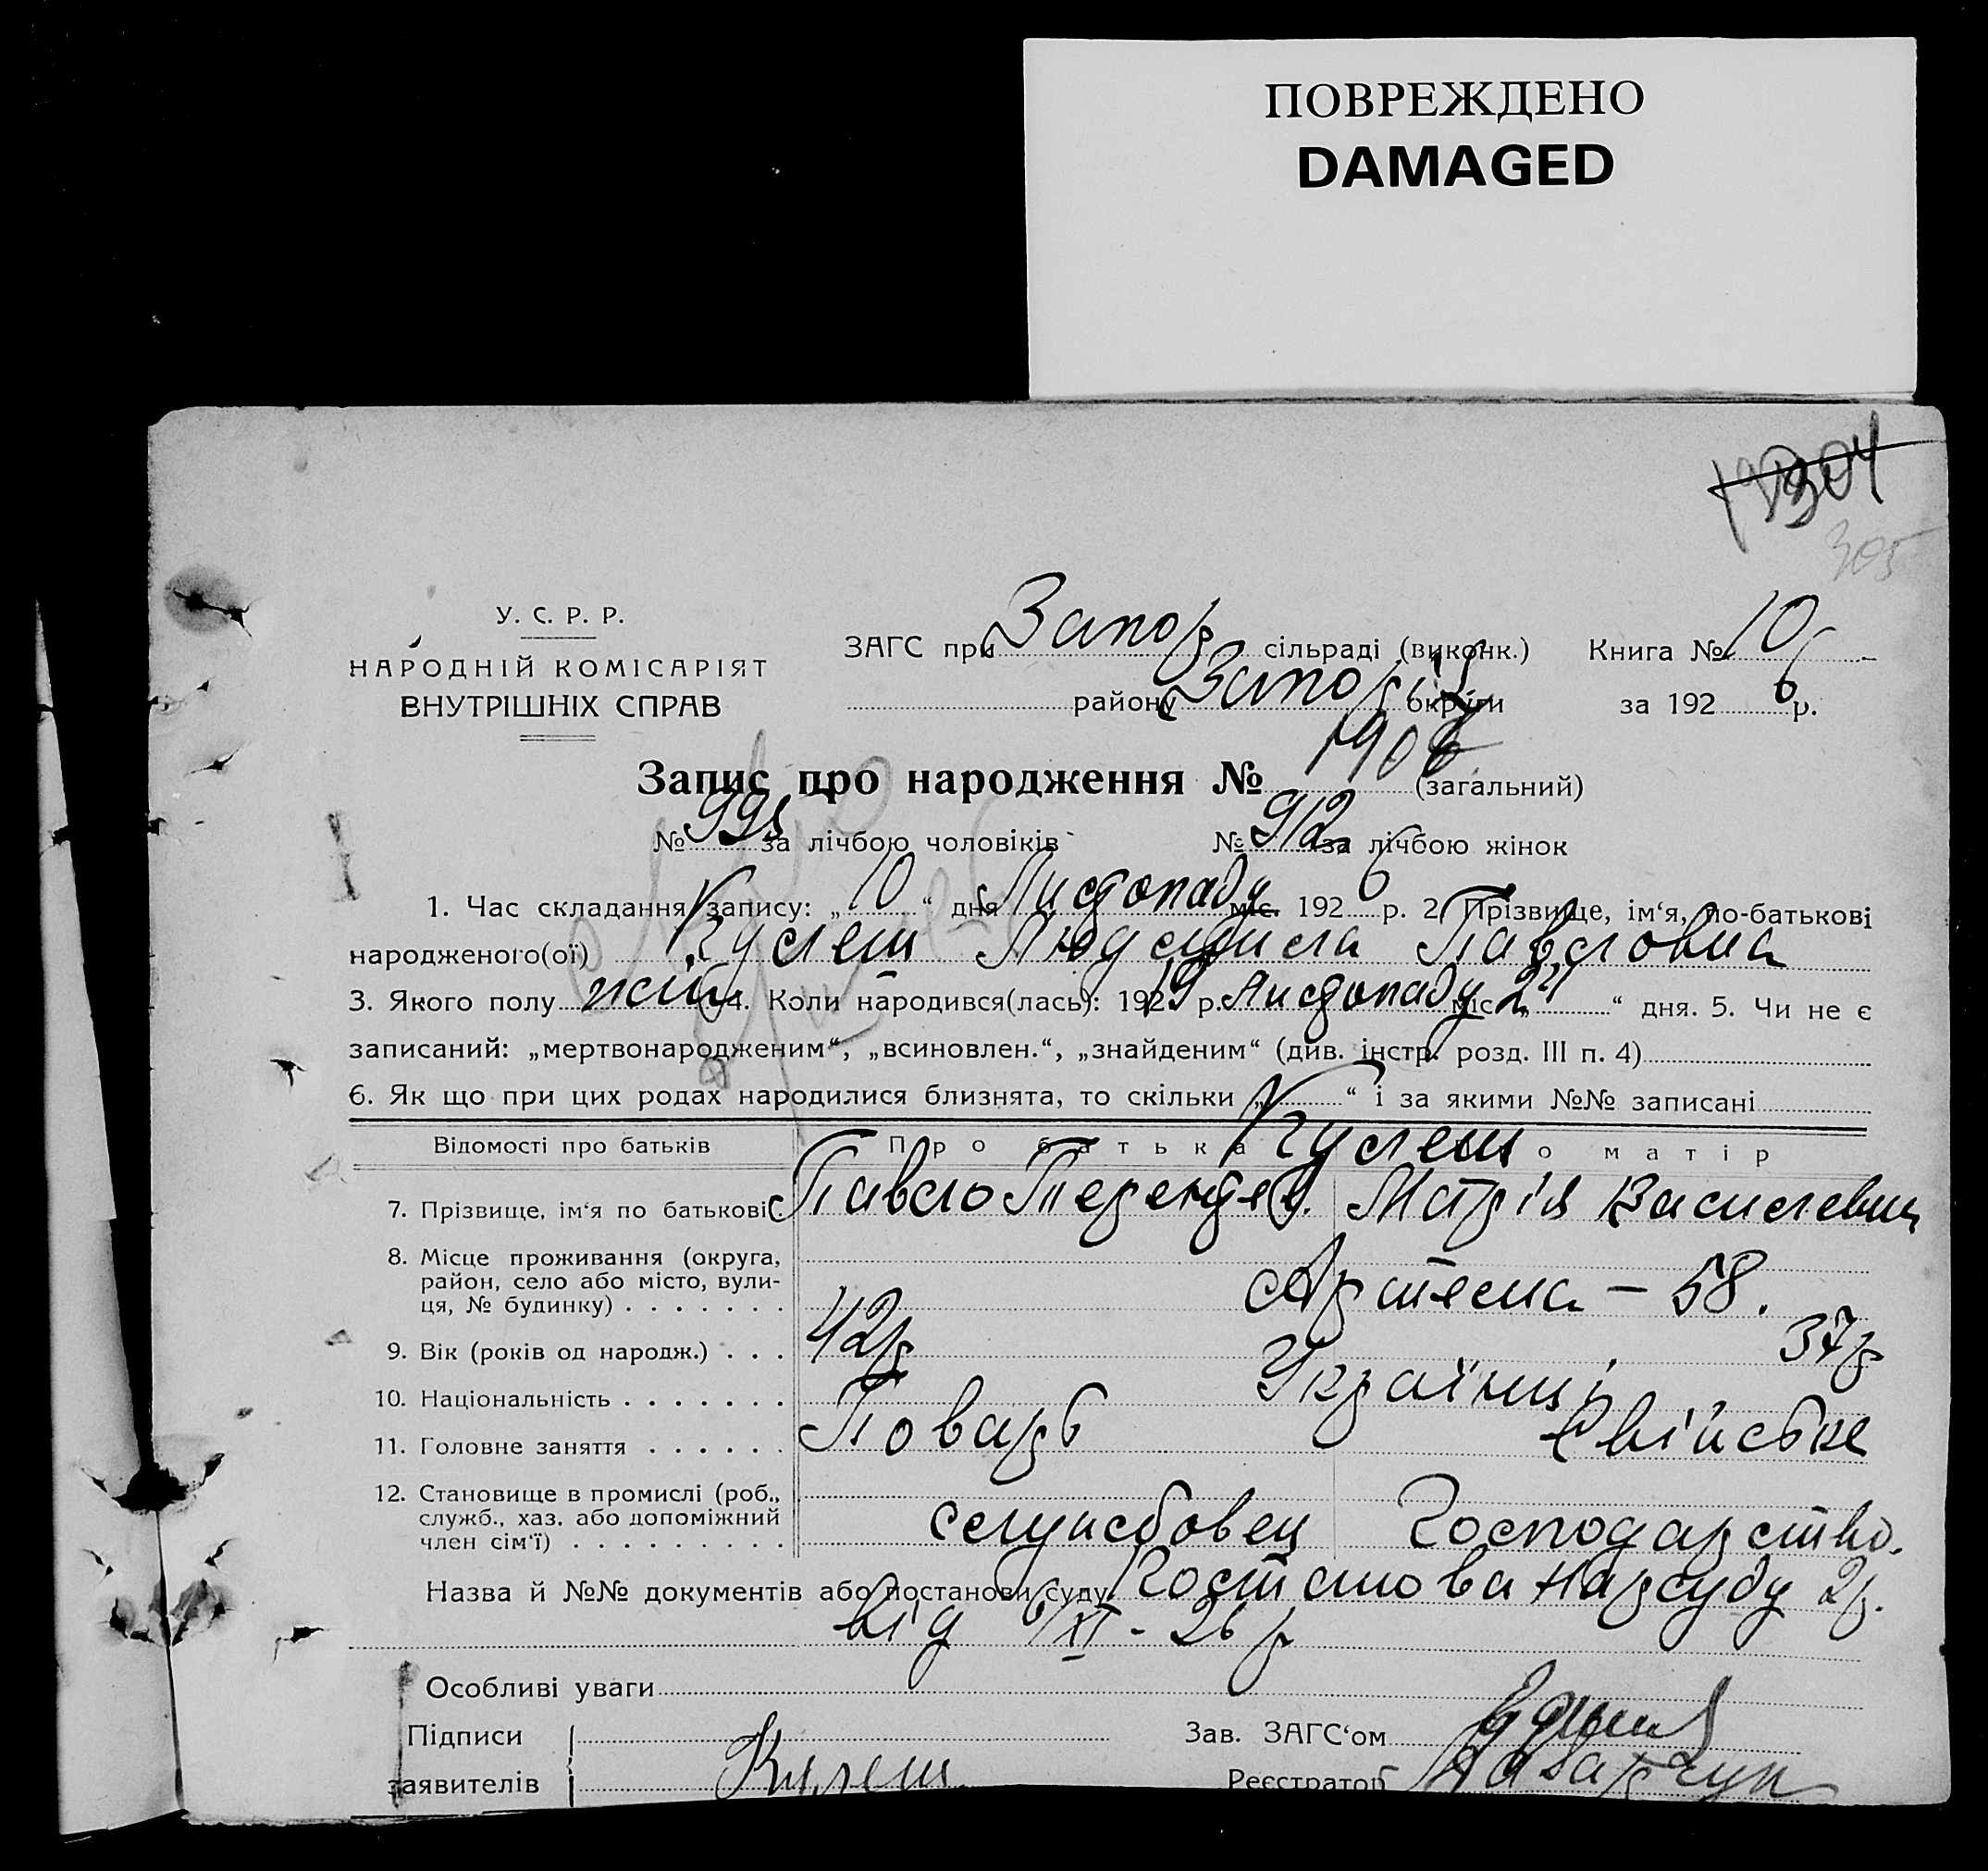 ПОВРЕЖДЕНО
DAMAGED
304
305
У. С. Р. Р.
НАРОДНІЙ КОМІСАРІЯТ
ВНУТРІШНІХ СПРАВ
ЗАГС при Запор сільраді (виконк.) Книга № 10
району Запоріз округи за 1926 р.
Запис про народження № 1906 (загальний)
№ за лічбою чоловіків № 912 за лічбою жінок
1. Час складання запису: „10“ дня Листопаду міс. 1926 р. 2. Прізвище, ім‘я, по-батькові
народженого(ої) Кулеш Людмила Павловна
3. Якого полу жін. 4. Коли народився(лась): 1919 р. Листопаду міс. „24“ дня. 5. Чи не є
записаний: „мертвонародженим“, „всиновлен.“, „знайденим“ (див. інстр. розд. III п. 4)
6. Як що при цих родах народилися близнята, то скільки „“ і за якими №№ записані
Відомості про батьків Про батька Про матір
Кулеш
7. Прізвище, ім‘я по батькові Павло Терентев. Марія Василевна
8. Місце проживання (округа,
район, село або місто, вули-
ця, № будинку) Артема – 58.
9. Вік (років од народж.) 42р 37р
10. Національність Українці
11. Головне заняття Поварь Свійське
12. Становище в промислі (роб.,
служб., хаз. або допоміжний
член сім‘ї) службовец Господарство.
Назва й №№ документів або постанови суду Постанова Нарсуду 2р.
від 6/XI - 26 р
Особливі уваги
Підписи
заявителів Кулеш
Зав. ЗАГС‘ом
Реєстратор